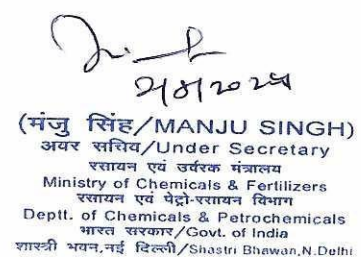 (मंजु सिंह/MANJU SINGH)
अवर सचिव/Under Secretary
रसायन एवं उर्वरक मंत्रालय
Ministry of Chemicals & Fertilizers
रसायन एवं पेट्रो-रसायन विभाग
Deptt. of Chemicals & Petrochemicals
भारत सरकार/Govt. of India
शास्त्री भवन,नई दिल्ली/Shastri Bhawan,N.Delhi